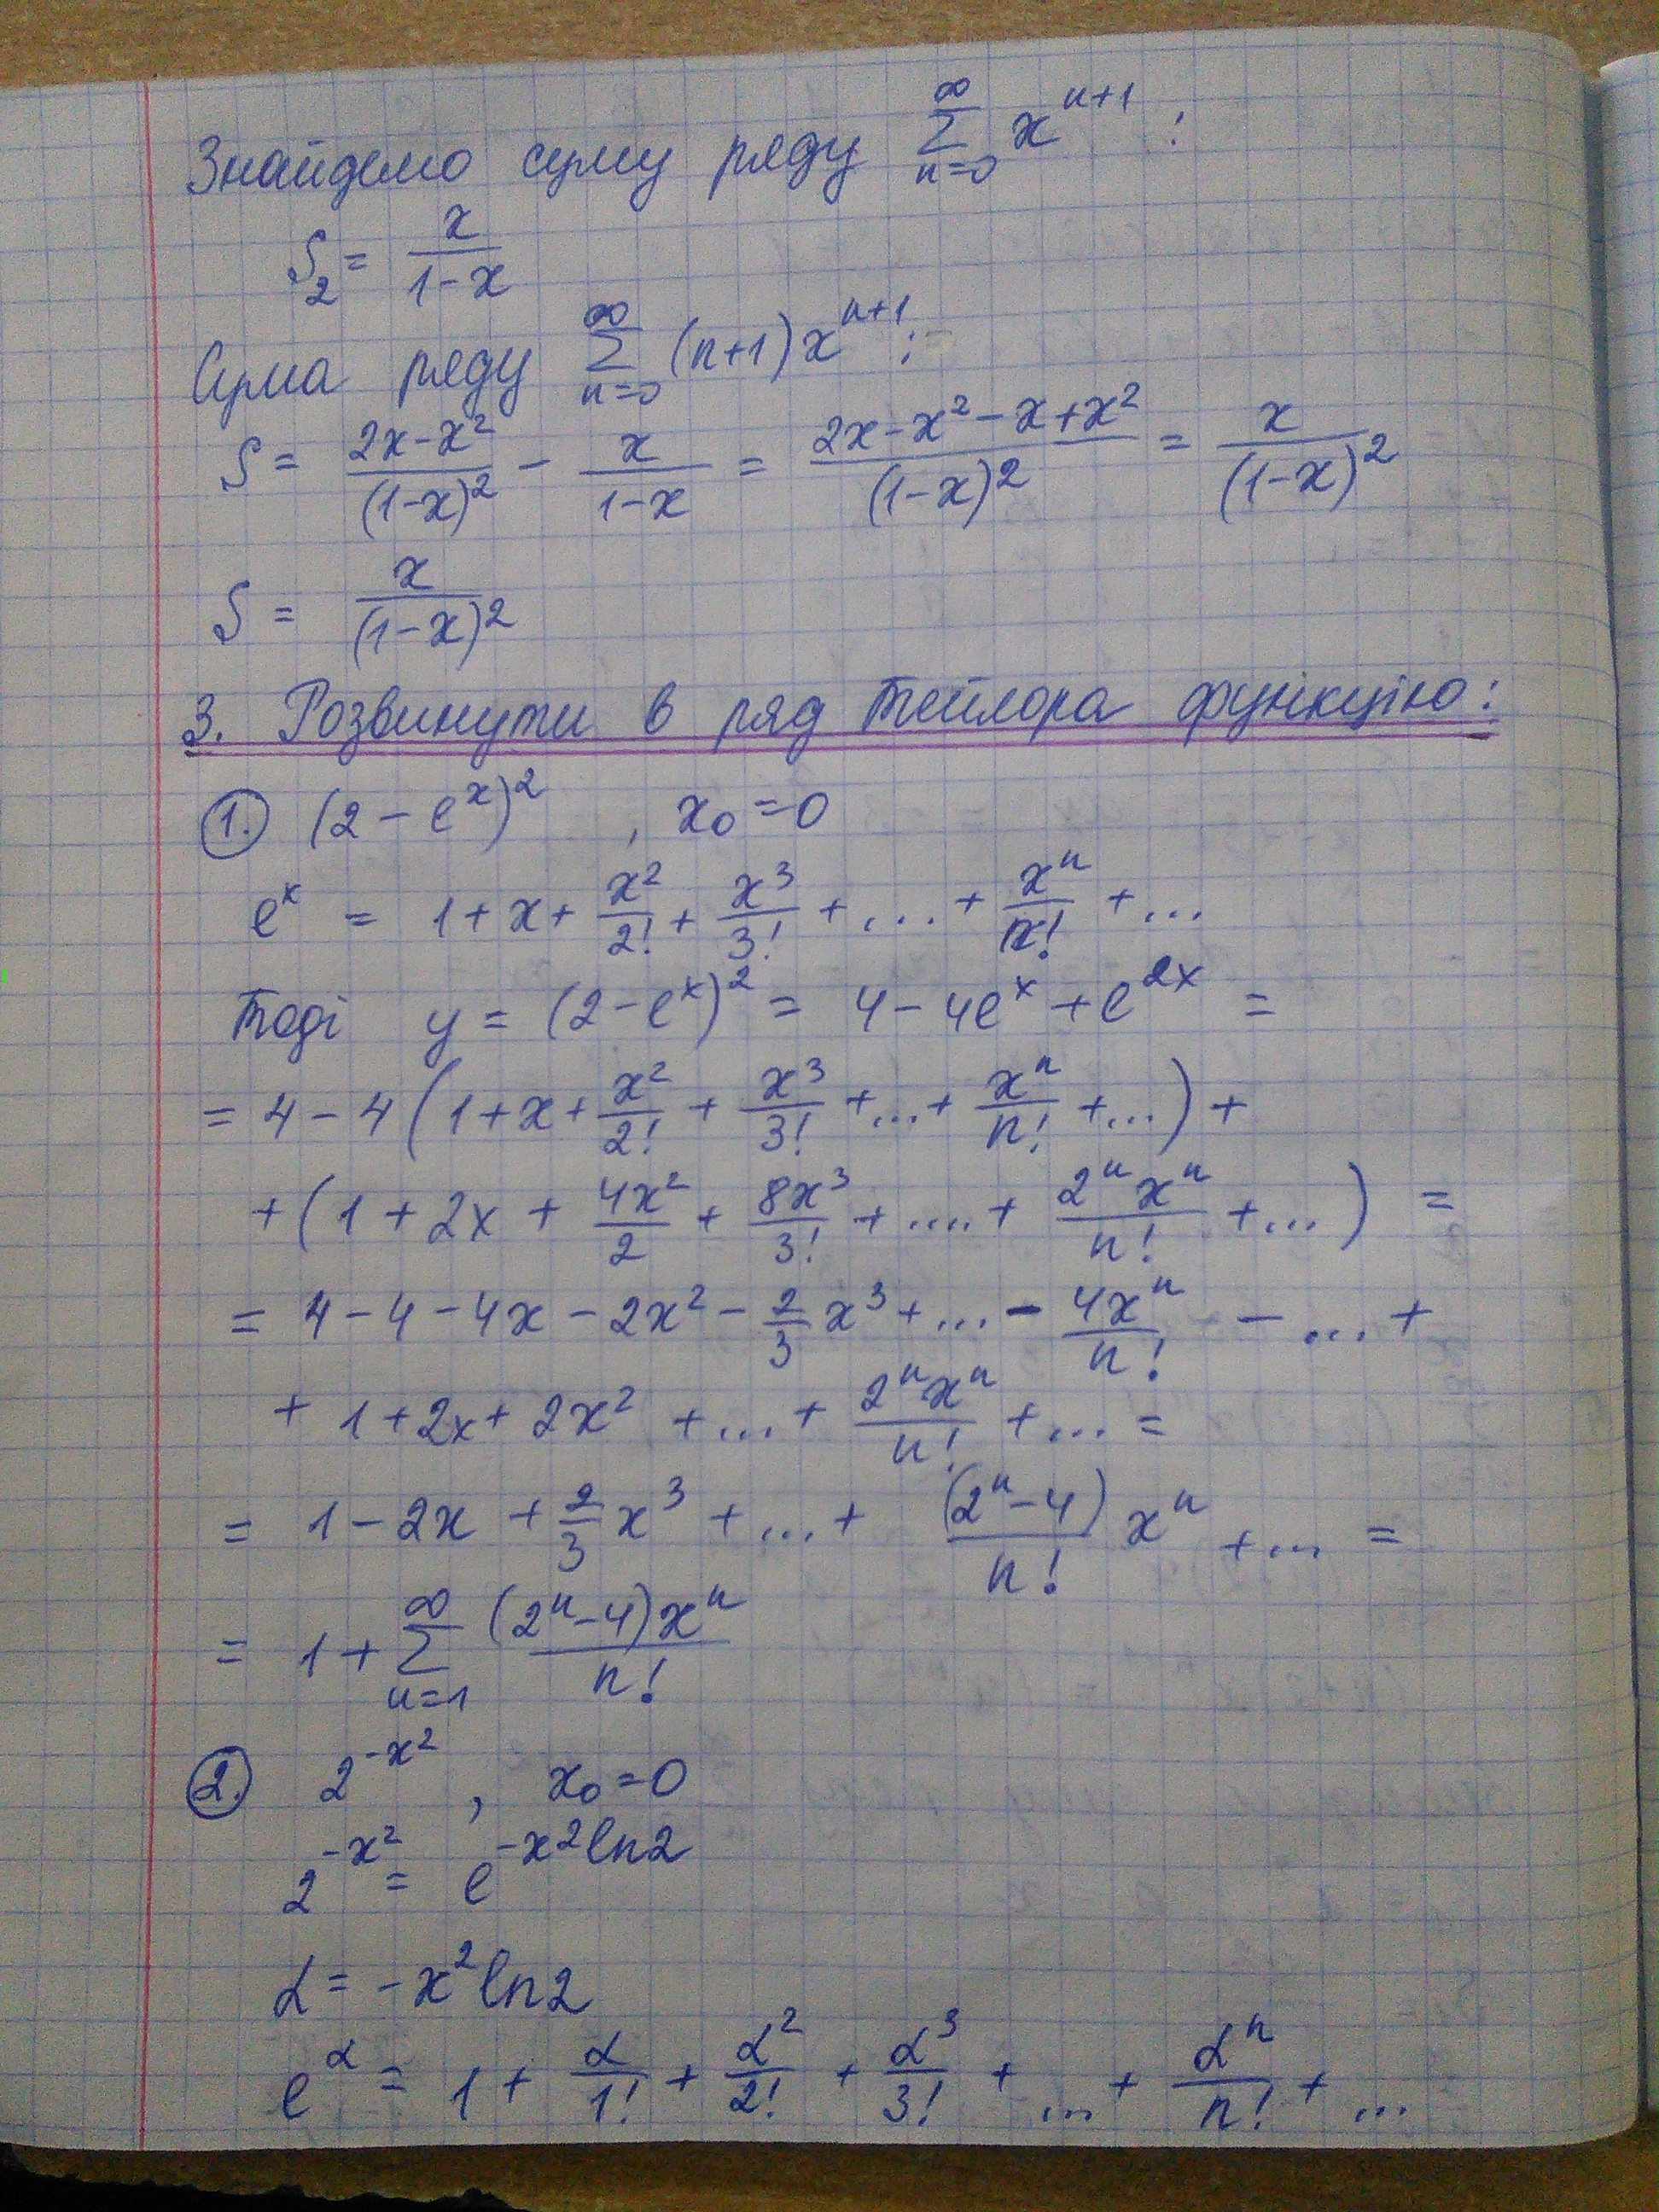 Знайдемо суму ряду ∑_{n=0}^{∞} x^{n+1} :
S₂ = x/(1-x)
Сума ряду ∑_{n=0}^{∞} (n+1)x^{n+1} :
S = (2x-x²)/(1-x)² - x/(1-x) = (2x-x²-x+x²)/(1-x)² = x/(1-x)²
S = x/(1-x)²
3. Розвинути в ряд Тейлора функцію:
1. (2-e^x)² , x₀=0
e^x = 1+x+x²/2!+x³/3!+...+x^n/n!+...
Тоді y = (2-e^x)² = 4-4e^x+e^{2x} =
= 4-4(1+x+x²/2!+x³/3!+...+x^n/n!+...)+
+(1+2x+4x²/2+8x³/3!+....+2^n x^n/n!+...) =
= 4-4-4x-2x²-2/3 x³+...-4x^n/n! - ...+
+1+2x+2x²+...+2^n x^n/n!+... =
= 1-2x+2/3 x³+...+(2^n-4)/n! x^n+... =
= 1+∑_{n=1}^{∞} (2^n-4)x^n/n!
2. 2^{-x²} , x₀=0
2^{-x²} = e^{-x²ln2}
α = -x²ln2
e^α = 1+α/1!+α²/2!+α³/3!+...+α^n/n!+...